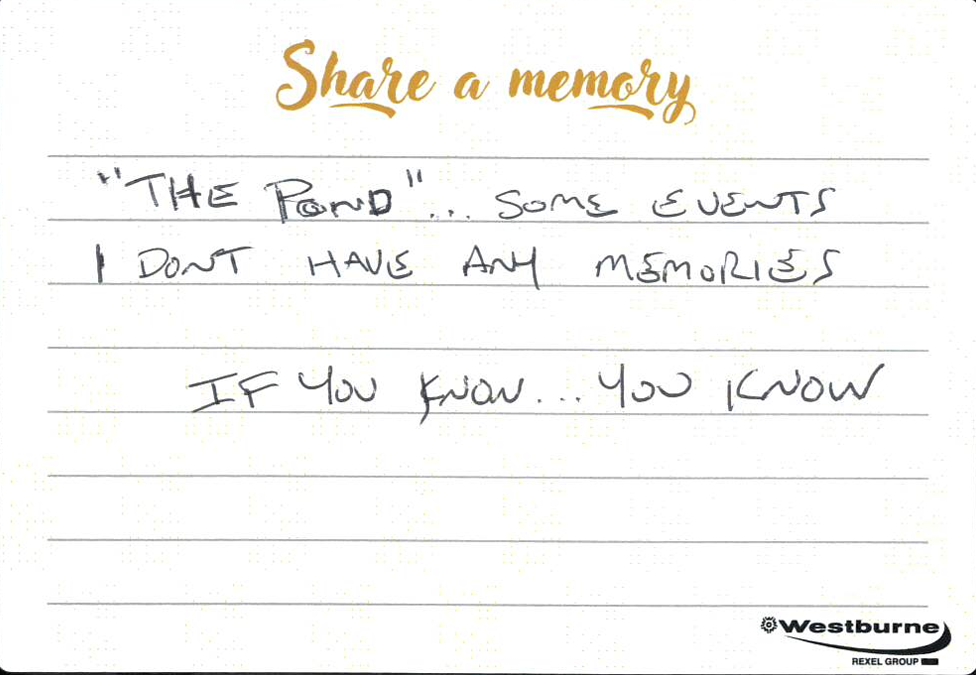 Share a memory
"THE POND"... SOME EVENTS
I DONT HAVE ANY MEMORIES
IF YOU KNOW... YOU KNOW
Westburne
REXEL GROUP